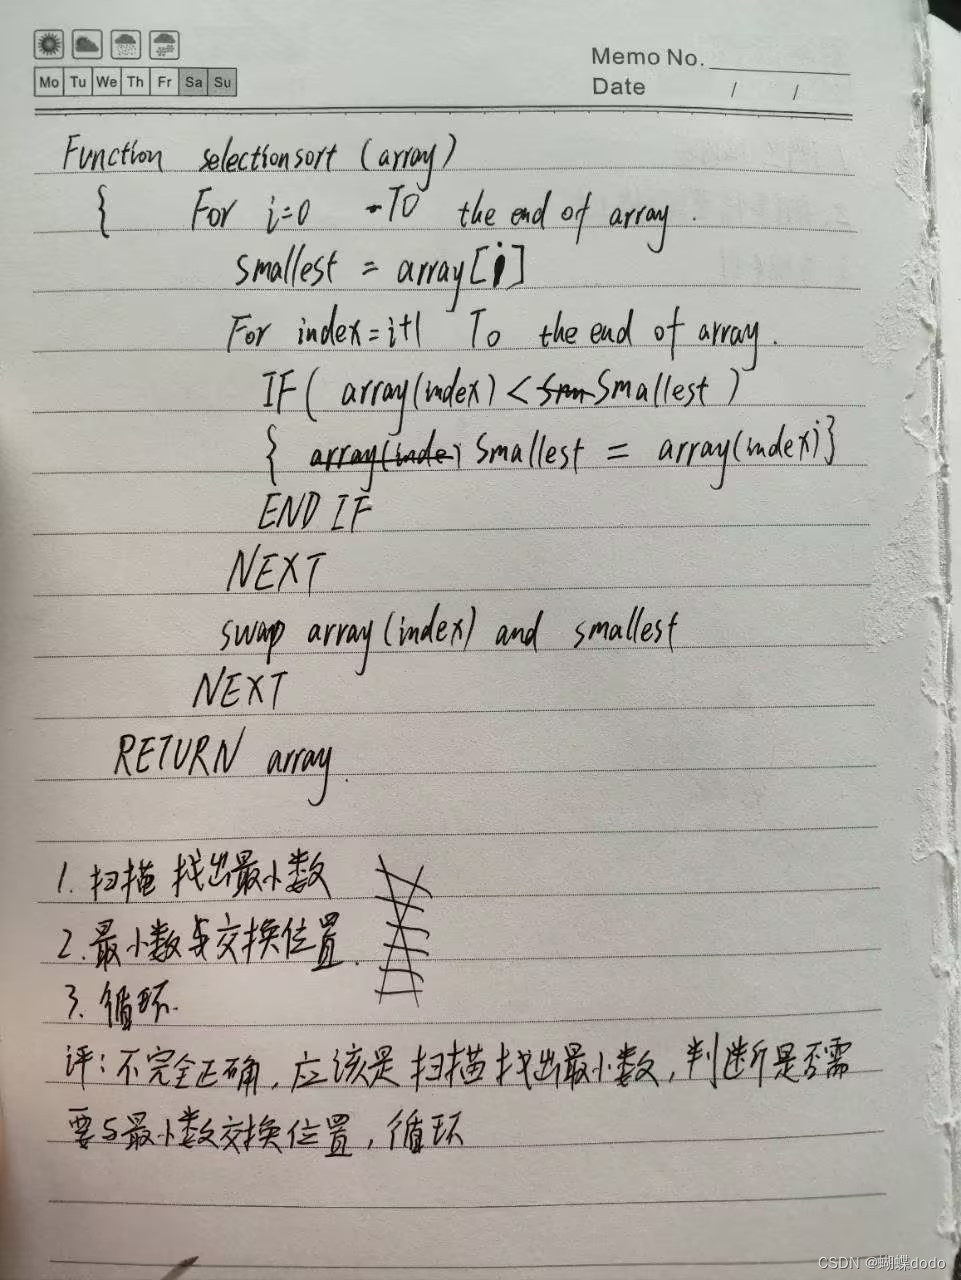 Mo Tu We Th Fr Sa Su
Memo No.
Date / /
Function selectionsort (array)
{ For i=0 -TO the end of array.
smallest = array[i]
For index=i+1 To the end of array.
IF( array(index) < Smallest )
{ Smallest = array(index)}
END IF
NEXT
swap array(index) and smallest
NEXT
RETURN array.
1. 扫描 找出最小数
2. 最小数与交换位置.
3. 循环.
评: 不完全正确, 应该是 扫描 找出最小数, 判断是否需
要与最小数交换位置, 循环
CSDN @蝴蝶dodo